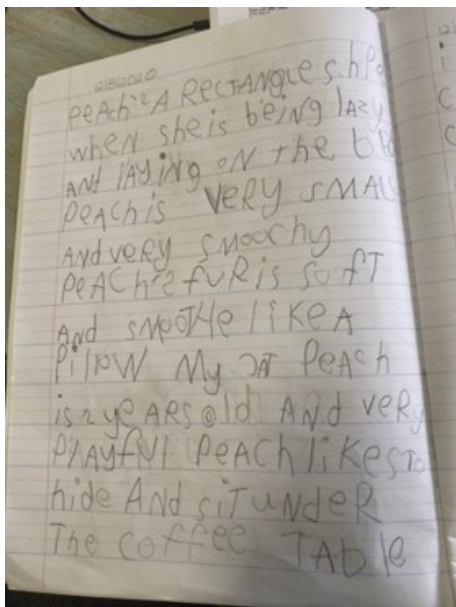 12/8/2020
PeAch'2 A RecTANgle shPe
when she is being lAzy
ANd lAying oN the bed
PeAch is very sMAll
ANd very sMoochy
PeACh'2 fuR is sofT
ANd sMoothe like A
Pillow My CAT PeAch
is 2 yeARs old ANd very
PlAyful PeAch likes To
hide ANd siT uNdeR
The coffee TAble